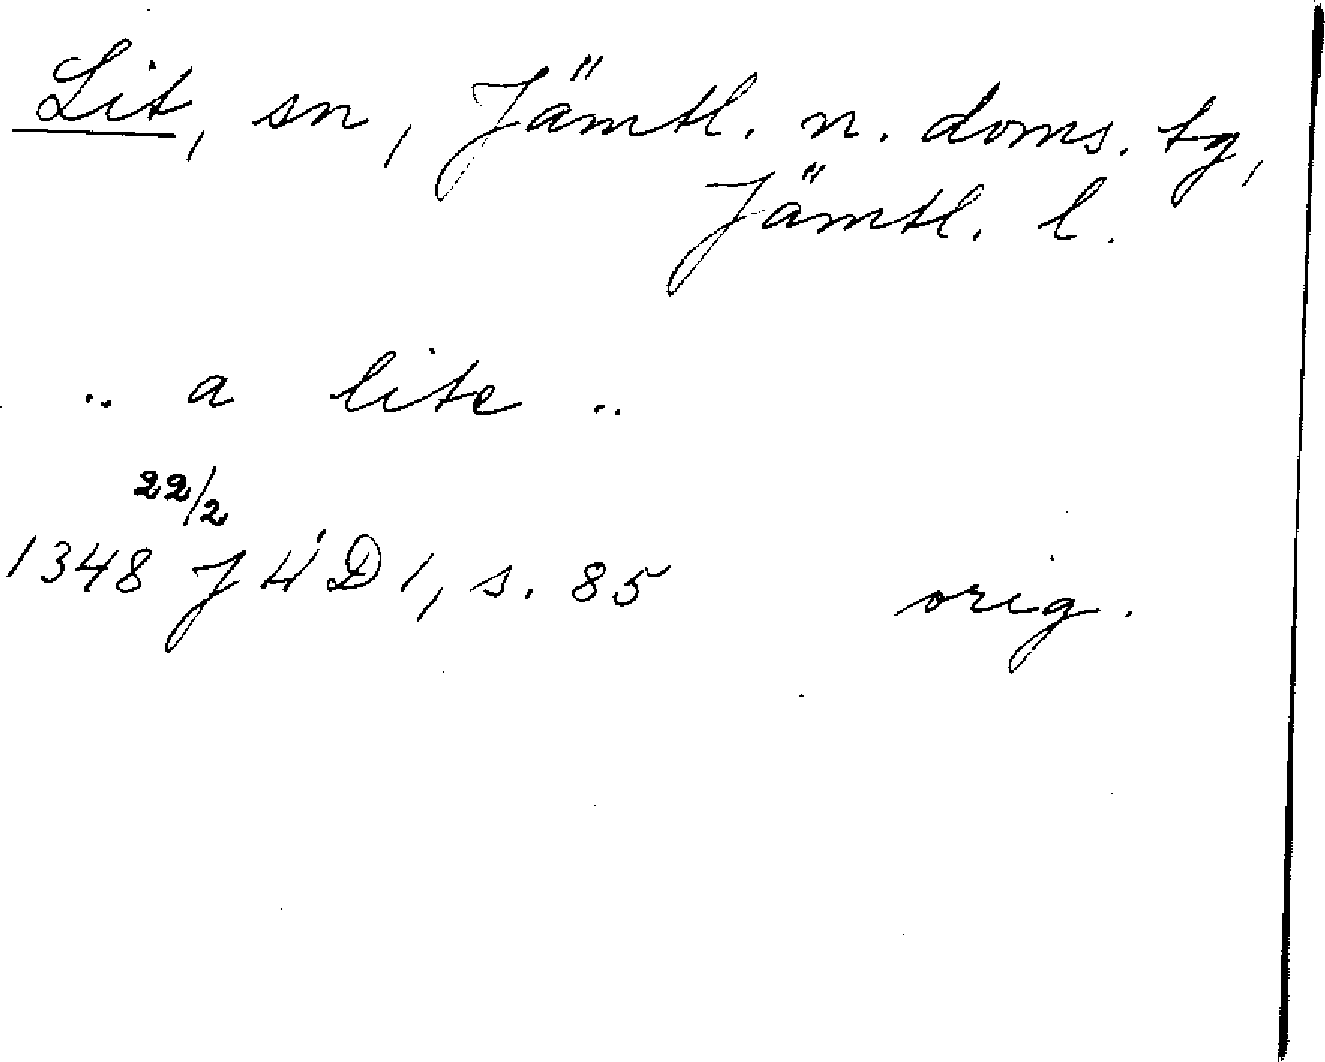 Lit, sn, Jämtl. n. doms. tg,
Jämtl. l.
.. a lite ..
22/2
1348 J H D 1, s. 85 orig.